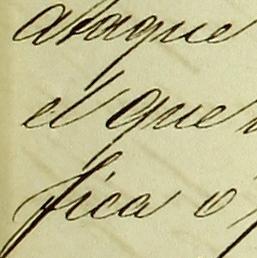 ataque
el que
fica o